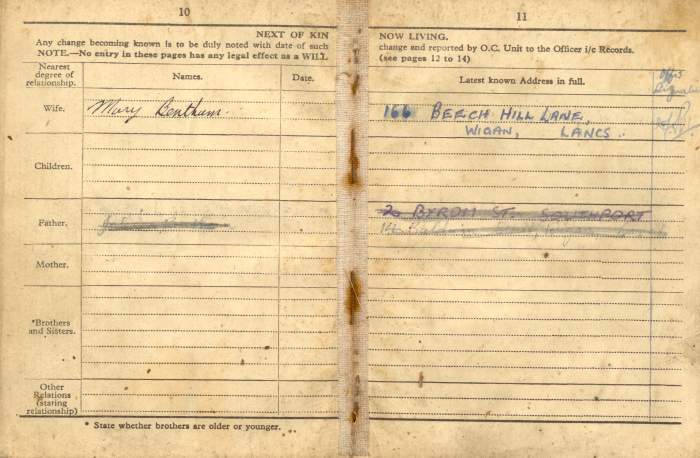 10
NEXT OF KIN
Any change becoming known is to be duly noted with date of such
NOTE.—No entry in these pages has any legal effect as a WILL.
Nearest
degree of
relationship.
Names.
Date.
Wife.
Mary Bentham.
Children.
Father.
Mother.
*Brothers
and Sisters.
Other
Relations
(stating
relationship)
* State whether brothers are older or younger.
11
NOW LIVING.
change and reported by O.C. Unit to the Officer i/c Records.
(see pages 12 to 14)
Latest known Address in full.
166 BEECH HILL LANE,
WIGAN, LANCS.
20 BYROM ST. SOUTHPORT